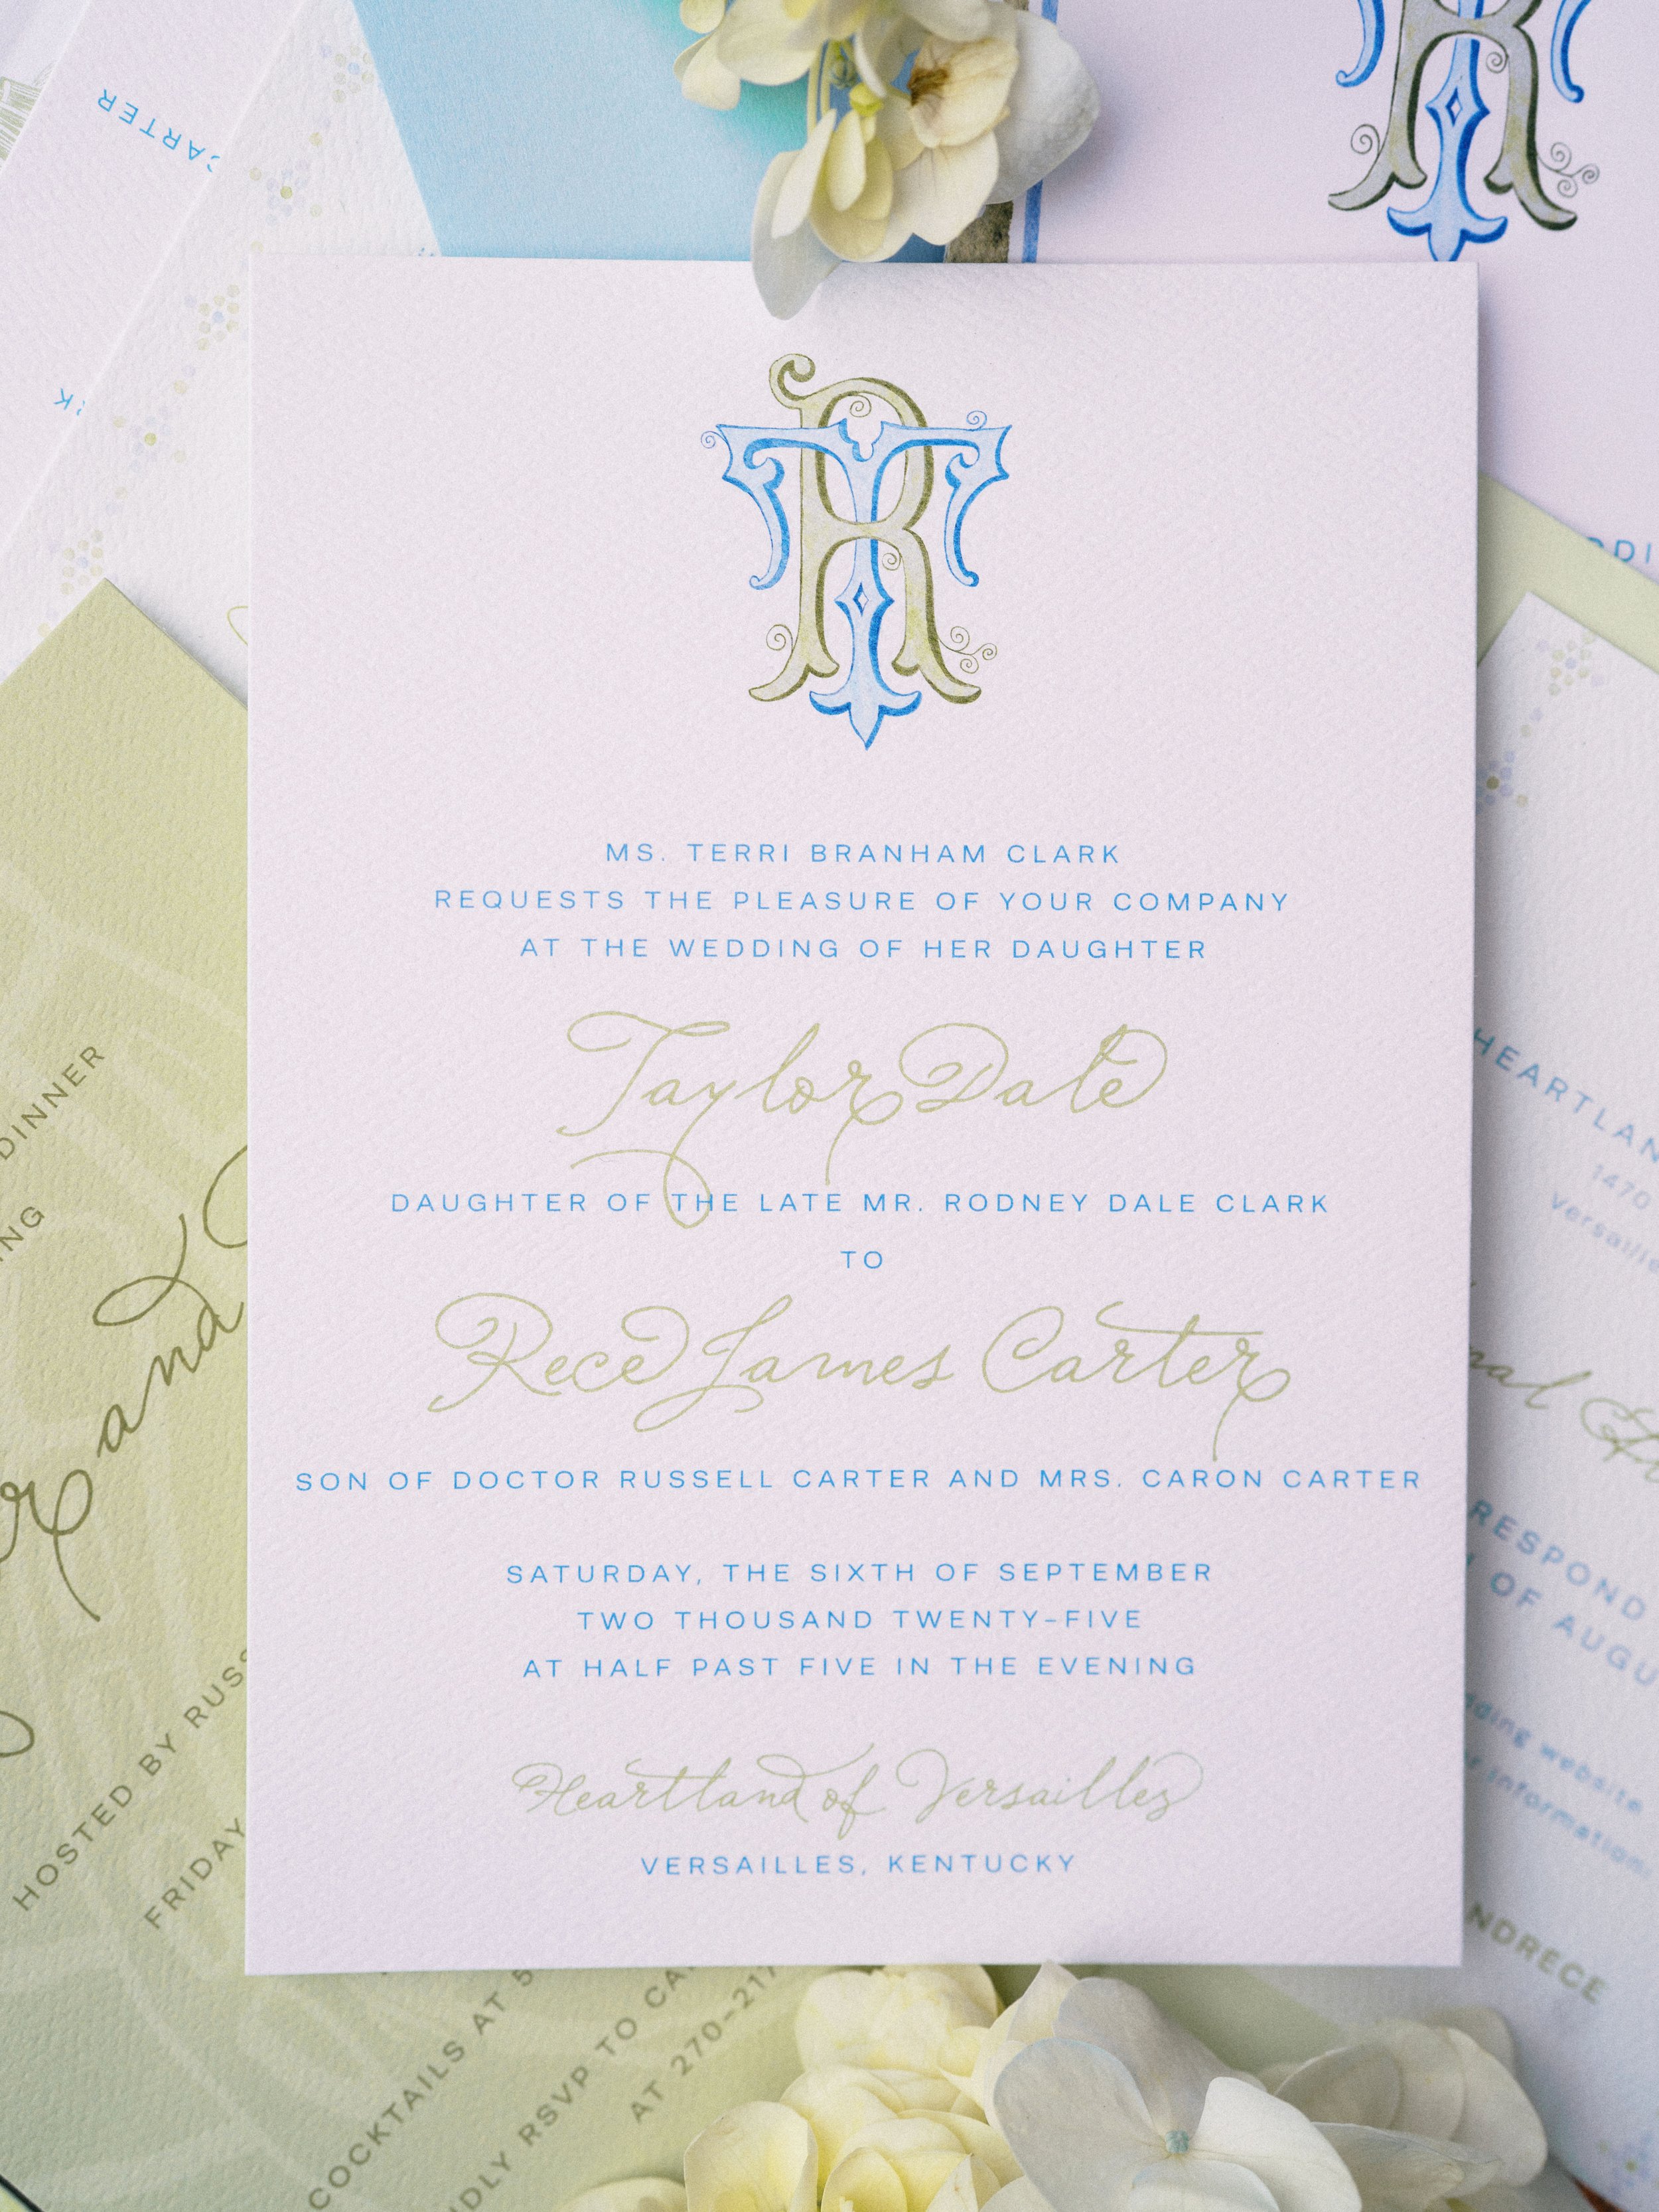 CARTER
TR
MS. TERRI BRANHAM CLARK
REQUESTS THE PLEASURE OF YOUR COMPANY
AT THE WEDDING OF HER DAUGHTER
Taylor Dale
DAUGHTER OF THE LATE MR. RODNEY DALE CLARK
TO
Rece James Carter
SON OF DOCTOR RUSSELL CARTER AND MRS. CARON CARTER
SATURDAY, THE SIXTH OF SEPTEMBER
TWO THOUSAND TWENTY-FIVE
AT HALF PAST FIVE IN THE EVENING
Heartland of Versailles
VERSAILLES, KENTUCKY
DINNER
and
HOSTED BY RUSS
FRIDAY
COCKTAILS AT 5
RSVP TO CA
AT 270-217
HEARTLAN
1470
Versaille
RESPOND
OF AUGU
website
information.
NDRECE